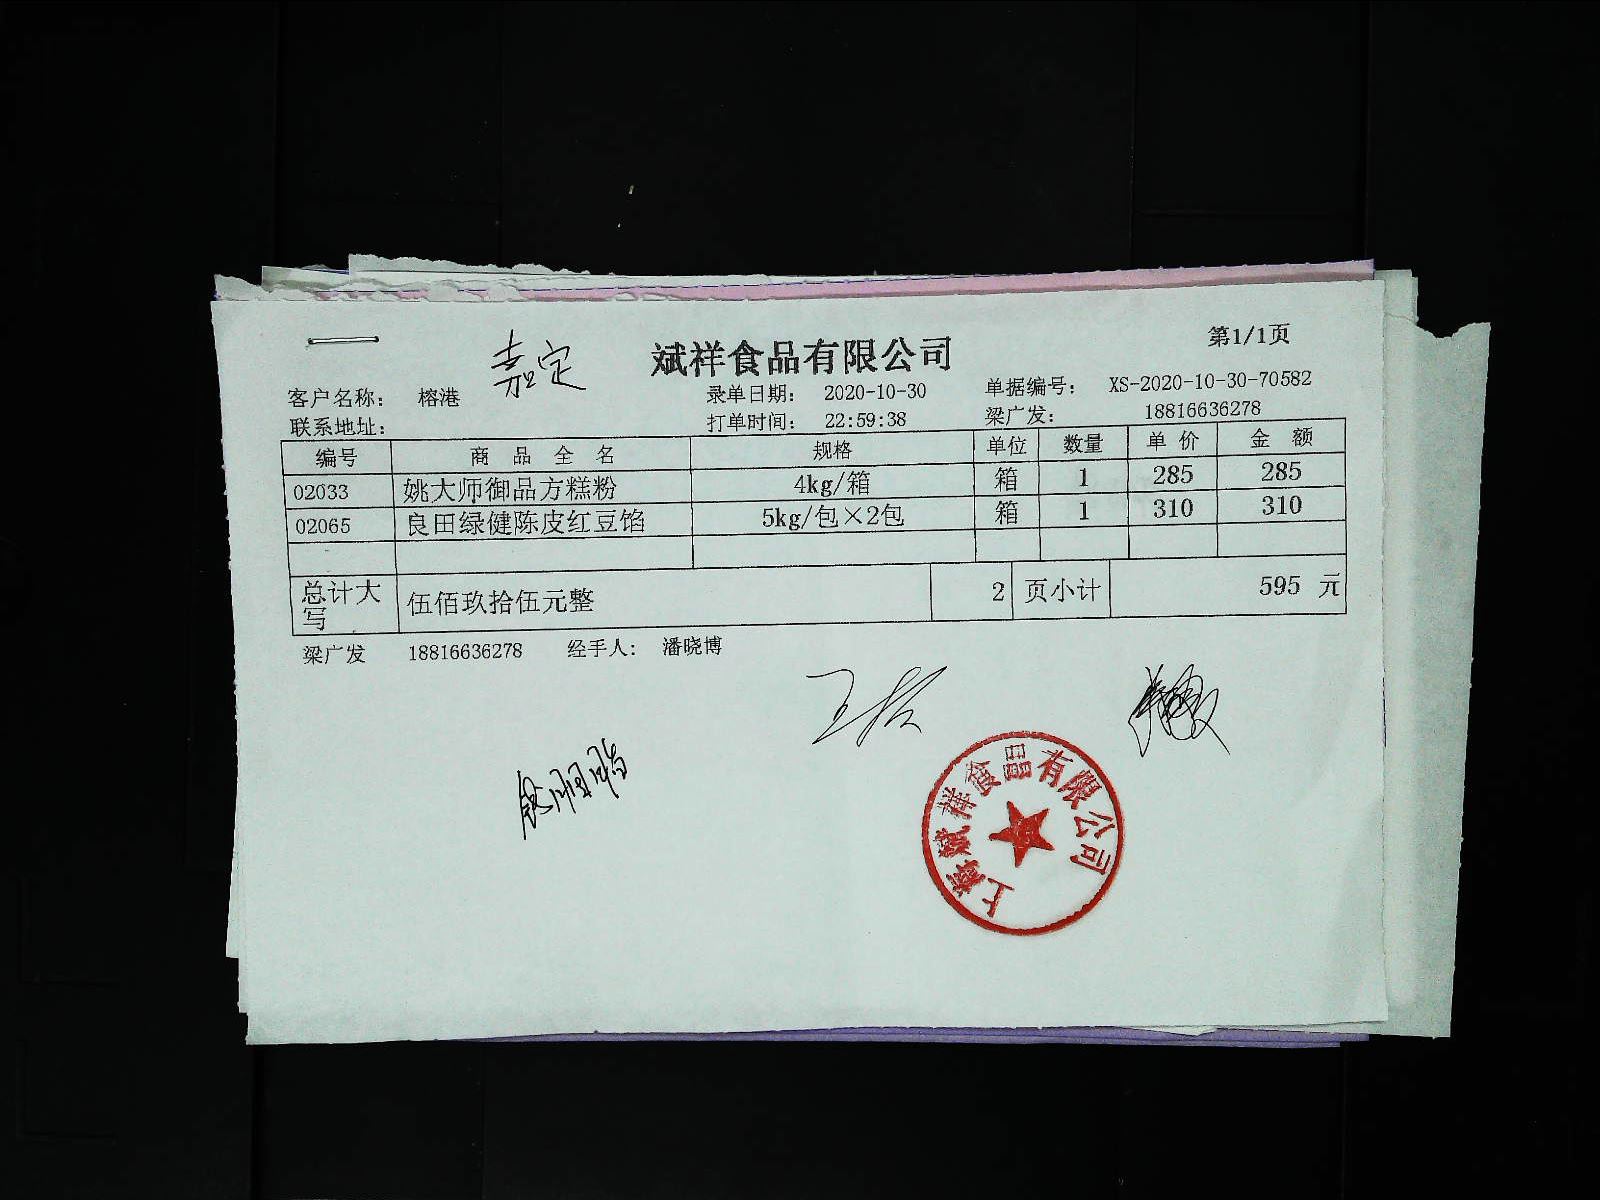 第1/1页
嘉定
斌祥食品有限公司
客户名称： 榕港 录单日期： 2020-10-30 单据编号： XS-2020-10-30-70582
联系地址： 打单时间： 22:59:38 梁广发： 18816636278
编号 商 品 全 名 规格 单位 数量 单 价 金 额
02033 姚大师御品方糕粉 4kg/箱 箱 1 285 285
02065 良田绿健陈皮红豆馅 5kg/包×2包 箱 1 310 310
总计大写 伍佰玖拾伍元整 2 页小计 595 元
梁广发 18816636278 经手人： 潘晓博
上海斌祥食品有限公司